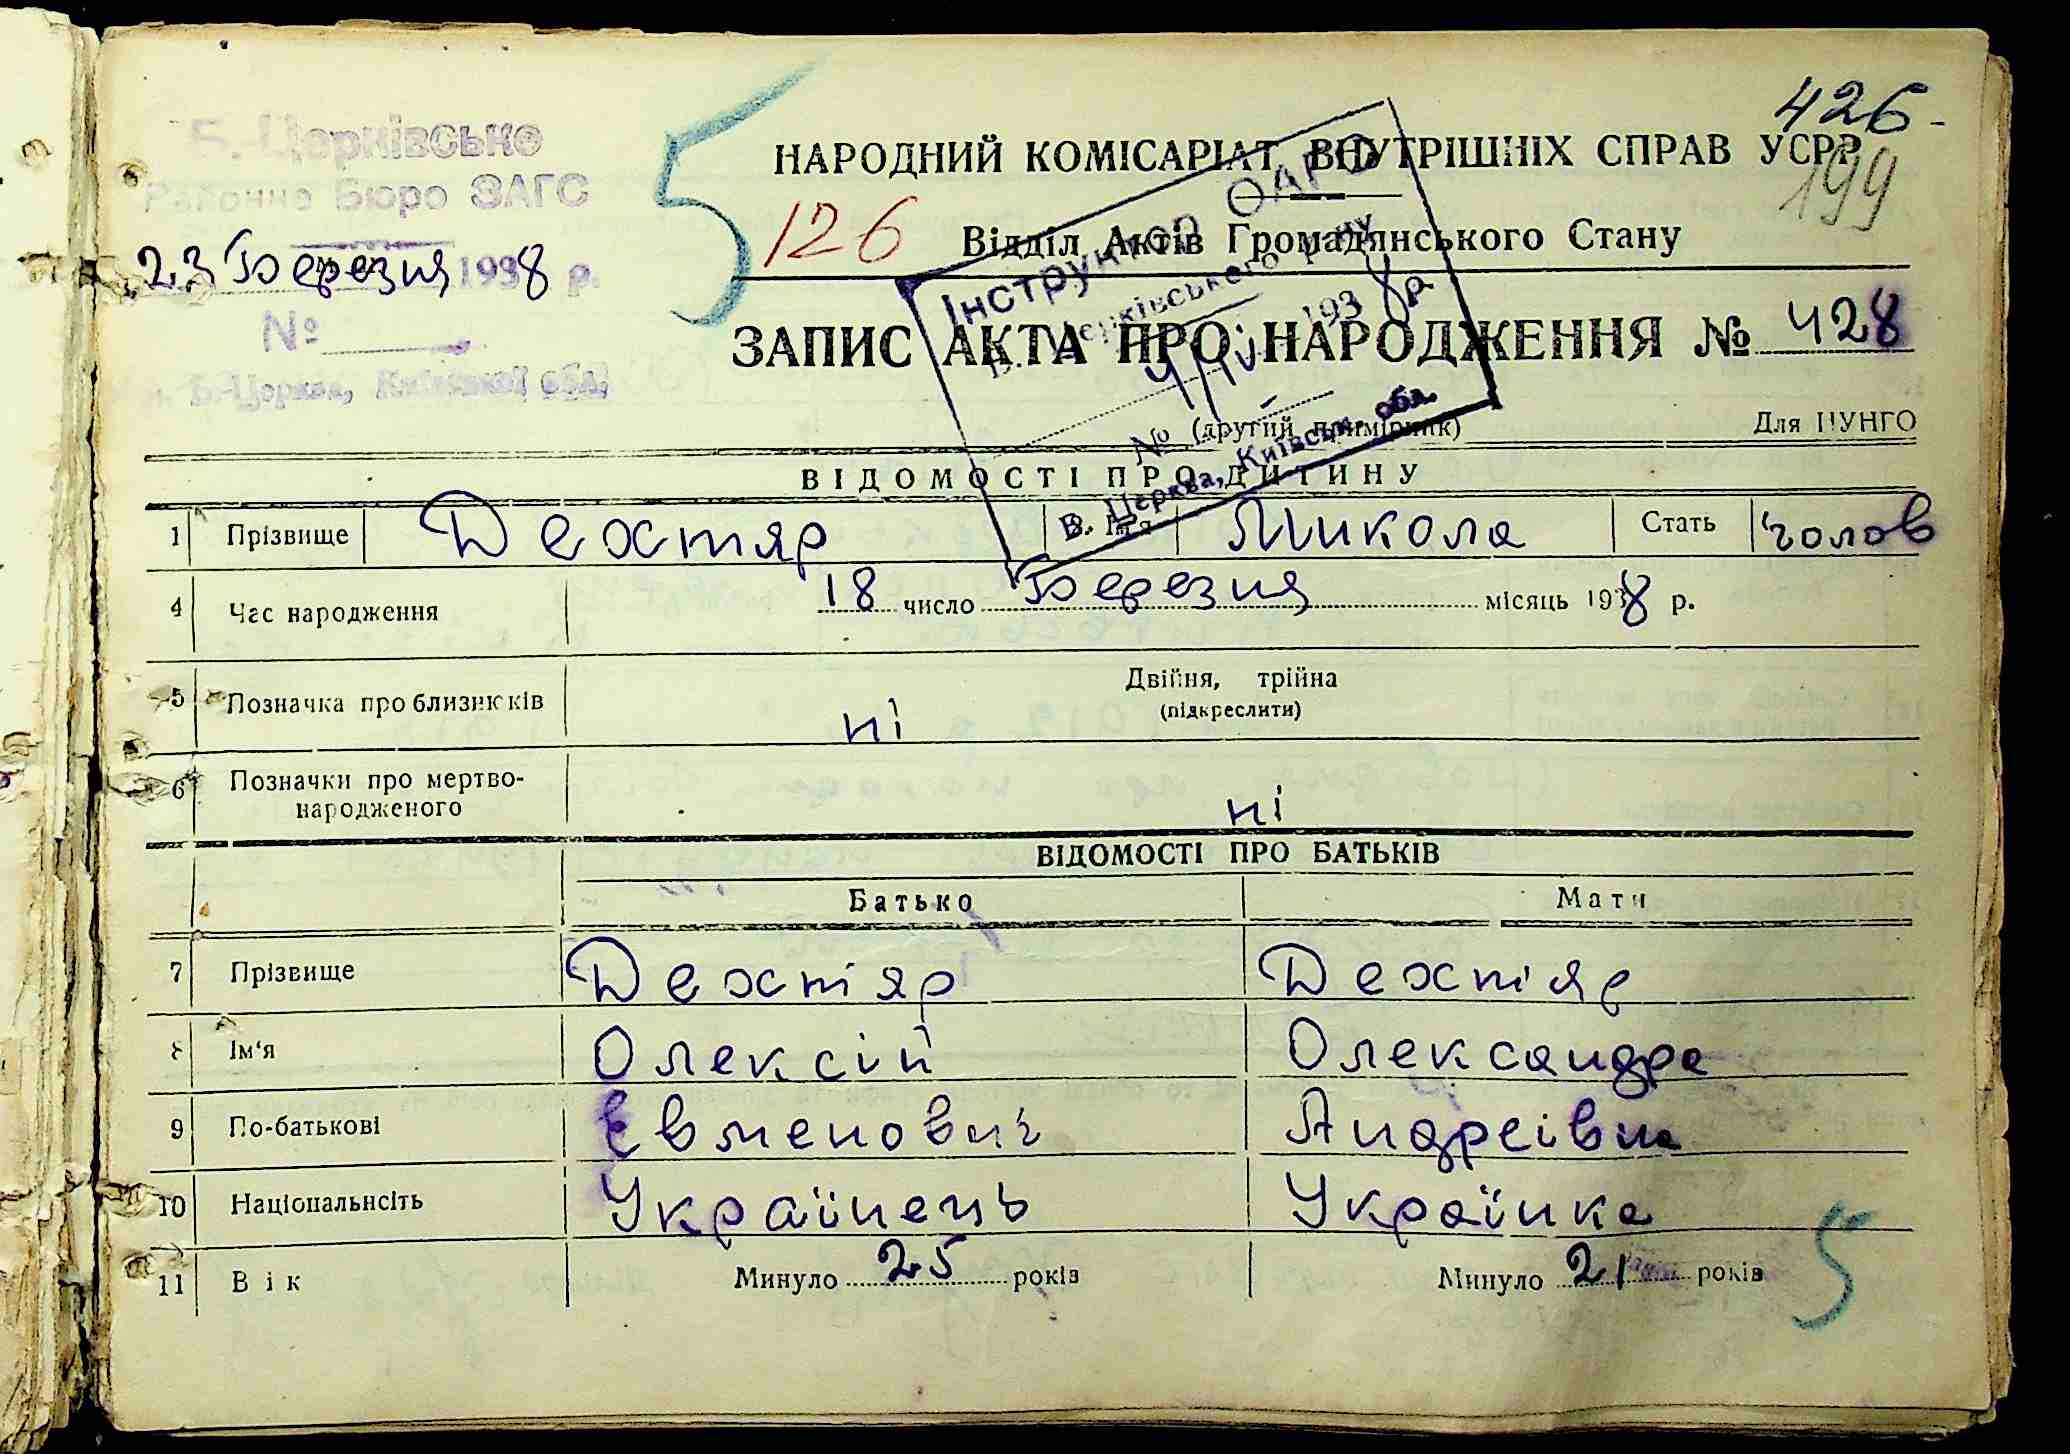 426-
Б.-Церківське
Районне Бюро ЗАГС
23 Березня 1938 р.
№
м. Б.-Церква, Київської обл.
5
126
199
НАРОДНИЙ КОМІСАРІАТ ВНУТРІШНІХ СПРАВ УСРР
Відділ Актів Громадянського Стану
Інструктор ОАГС
Б. Церківського
193 8 р.
4/IV
№
Б. Церква, Київськ. обл.
ЗАПИС АКТА ПРО НАРОДЖЕННЯ № 428
(другий примірник)
Для ЦУНГО
ВІДОМОСТІ ПРО ДИТИНУ
1 Прізвище Дехтяр Ім'я Микола Стать чолов
4 Час народження 18 число Березня місяць 1938 р.
5 Позначка про близнюків ні Двійня, трійна
(підкреслити)
6 Позначки про мертво-
народженого ні
ВІДОМОСТІ ПРО БАТЬКІВ
Батько Мати
7 Прізвище Дехтяр Дехтяр
8 Ім'я Олексій Олександра
9 По-батькові Євменович Андреівна
10 Національність Українець Українка
11 Вік Минуло 25 років Минуло 21 років
5